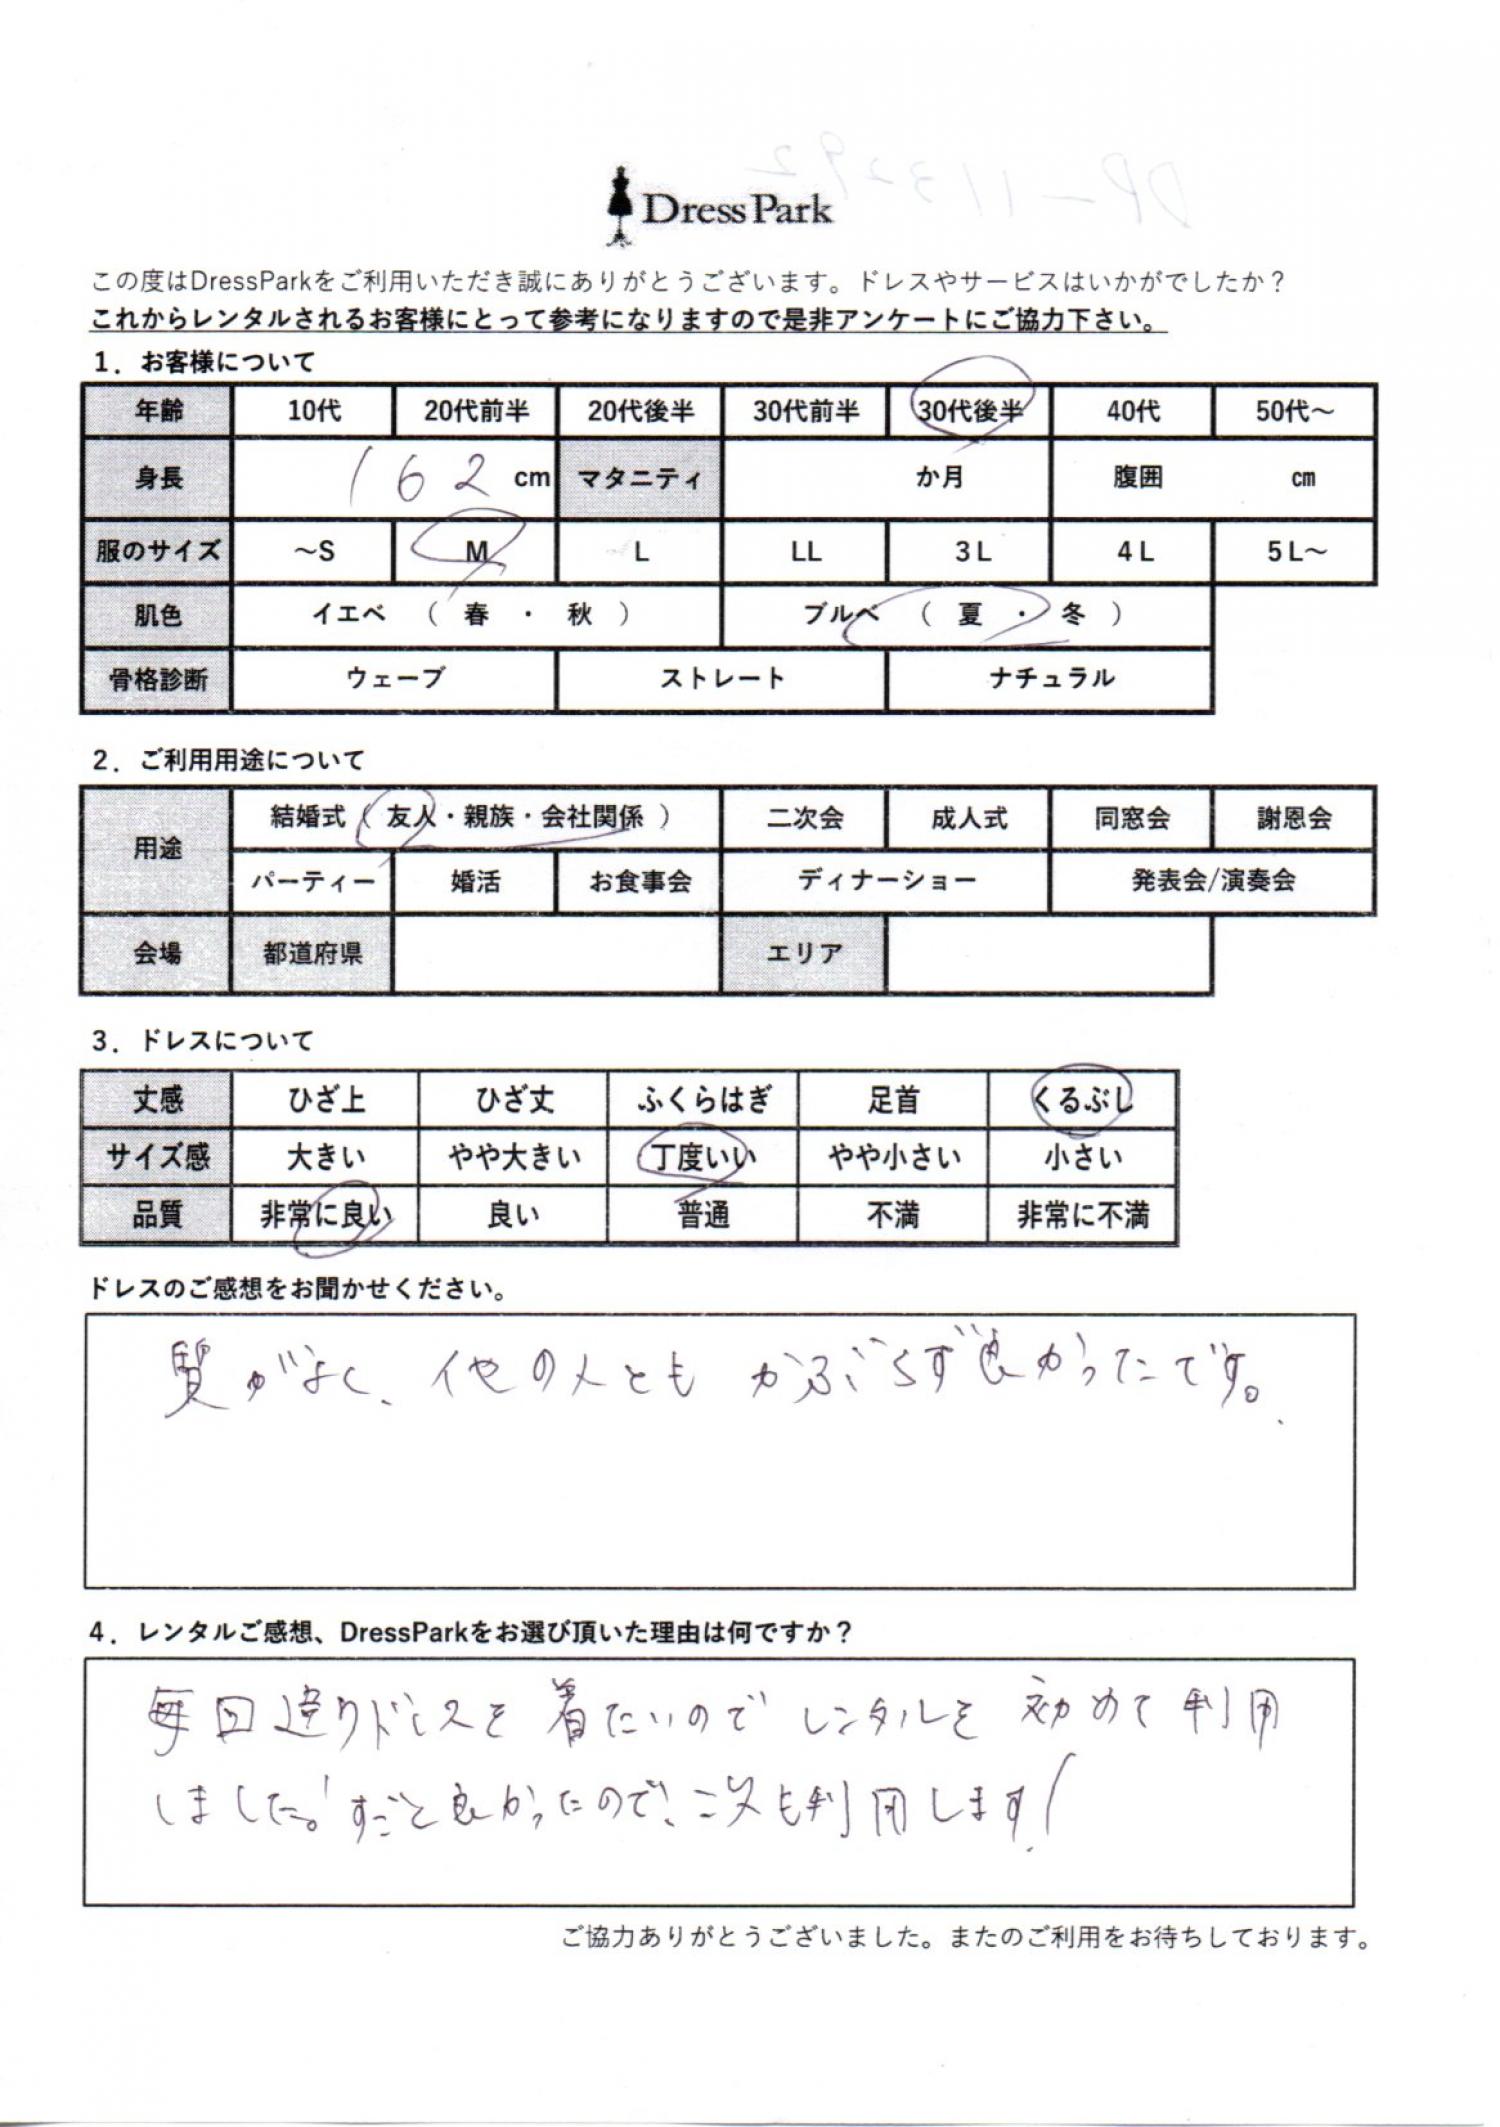 DressPark
この度はDressParkをご利用いただき誠にありがとうございます。ドレスやサービスはいかがでしたか？
これからレンタルされるお客様にとって参考になりますので是非アンケートにご協力下さい。
1．お客様について
年齢 10代 20代前半 20代後半 30代前半 30代後半 40代 50代～
身長 162 cm マタニティ か月 腹囲 ㎝
服のサイズ ～S M L LL 3L 4L 5L～
肌色 イエベ （ 春 ・ 秋 ） ブルベ （ 夏 ・ 冬 ）
骨格診断 ウェーブ ストレート ナチュラル
2．ご利用用途について
用途 結婚式（ 友人・親族・会社関係 ） 二次会 成人式 同窓会 謝恩会
パーティー 婚活 お食事会 ディナーショー 発表会/演奏会
会場 都道府県 エリア
3．ドレスについて
丈感 ひざ上 ひざ丈 ふくらはぎ 足首 くるぶし
サイズ感 大きい やや大きい 丁度いい やや小さい 小さい
品質 非常に良い 良い 普通 不満 非常に不満
ドレスのご感想をお聞かせください。
質がよく、他の人とも かぶらず良かったです。
4．レンタルご感想、DressParkをお選び頂いた理由は何ですか？
毎回違うドレスを着たいのでレンタルを初めて利用
しました。すごく良かったので、次も利用します!
ご協力ありがとうございました。またのご利用をお待ちしております。